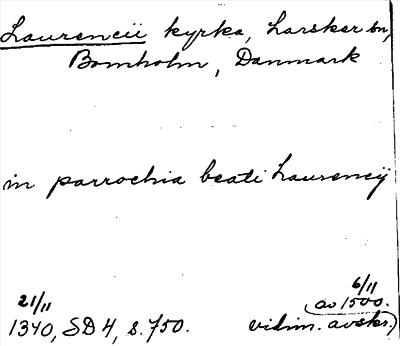 Laurencii kyrka, Larsker sn,
Bornholm, Danmark
in parrochia beati Laurencij
21/11 6/11
1340, SD 4, s. 750. (av 1500.
vidim. avskr.)